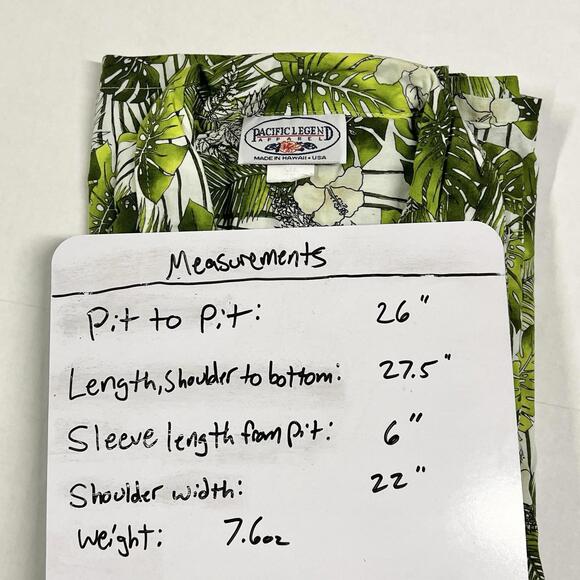 PACIFIC LEGEND
APPAREL
MADE IN HAWAII • USA
Measurements
Pit to Pit: 26"
Length, Shoulder to bottom: 27.5"
Sleeve length from Pit: 6"
Shoulder width: 22"
Weight: 7.6oz